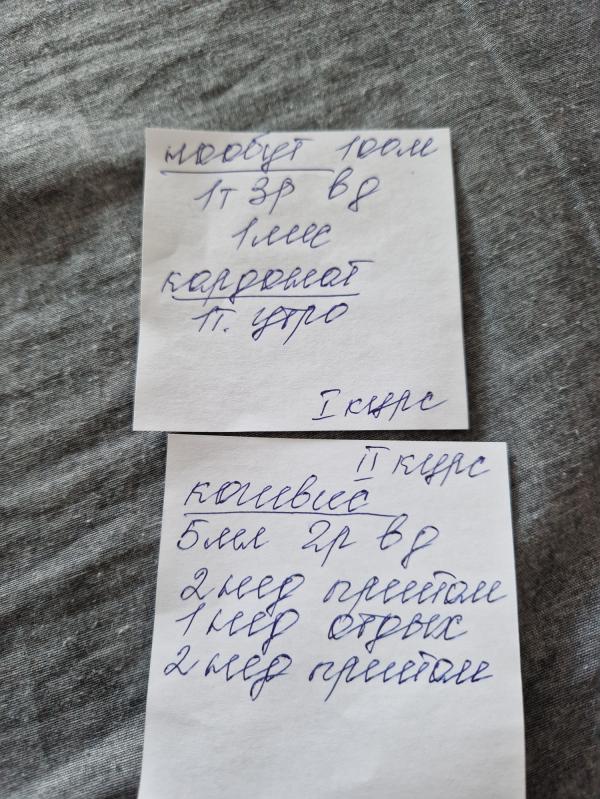 нообут 100м
1т 3р вд
1 мес
кардонат
1т. утро
I курс
II курс
5мл 2р вд
2 нед прием
1 нед отдых
2 нед прием